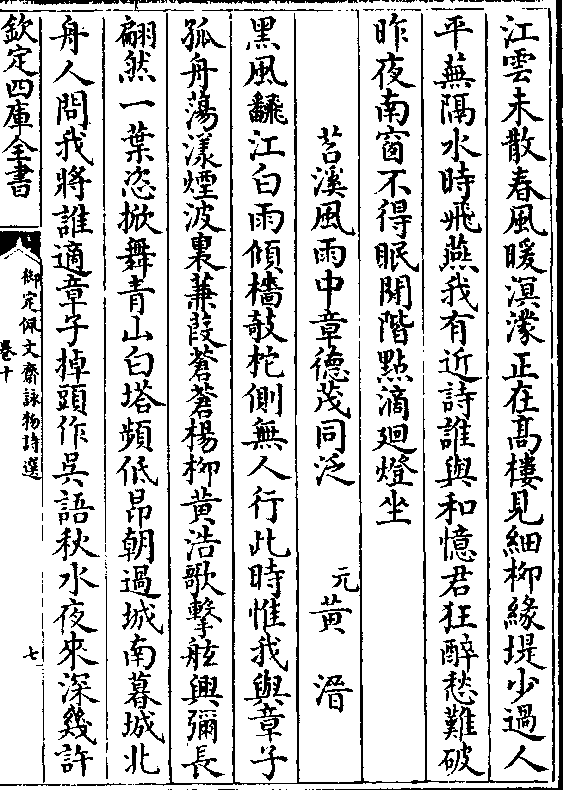 江雲未散春風暖溟濛正在髙樓見細栁緣堤少過人
平蕪隔水時飛燕我有近詩誰與和憶君狂醉愁難破
昨夜南窗不得眠閒階點滴廻燈坐
苕溪風雨中章德茂同泛
元黄溍
黑風飜江白雨傾檣敧柁側無人行此時惟我與章子
孤舟蕩漾煙波裏蒹葭蒼蒼楊栁黄浩歌擊舷興彌長
翩然一葉恣掀舞青山白塔頻低昂朝過城南暮城北
舟人問我將誰適章子掉頭作吳語秋水夜來深幾許
欽定四庫全書
御定佩文齋詠物詩選
卷十
七